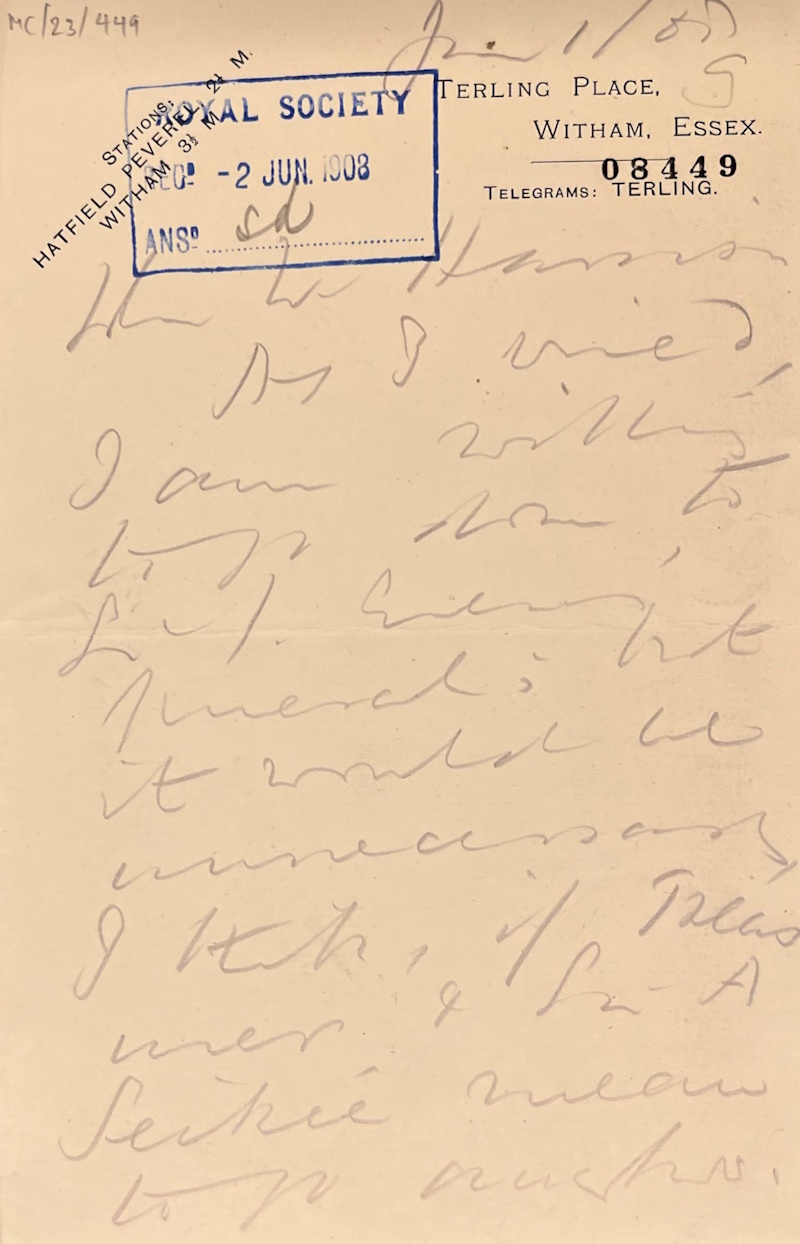 MC/23/449
Jun 1/08
STATIONS:
HATFIELD PEVEREL 2½ M.
WITHAM 3½ M.
ROYAL SOCIETY
RECD -2 JUN. 1908
ANSD sd
TERLING PLACE,
WITHAM, ESSEX.
08449
TELEGRAMS: TERLING.
Dear Mr Harrison
As I wired,
I am willing
to go down to
Sir J. Evans'
funeral; but
it would be
unnecessary,
I think, if Treas
urer & Sir A
Geikie mean
to go anyhow.